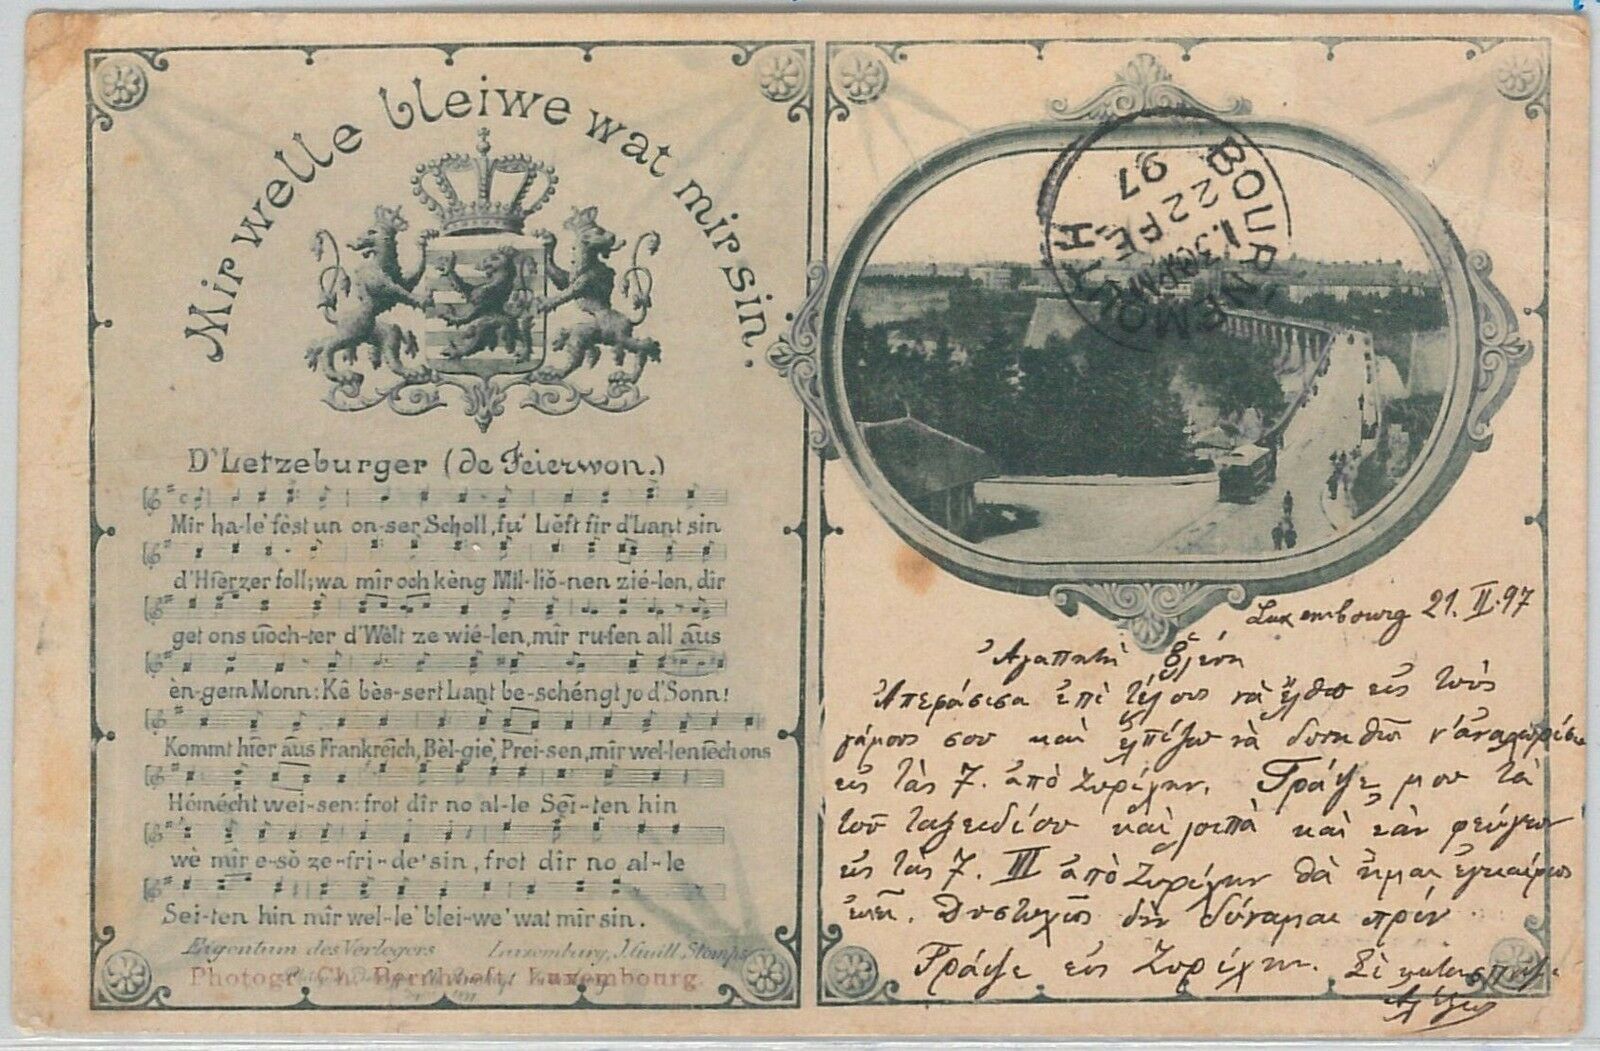 Mir welle bleiwe wat mir sin.
D'Letzeburger (de Feierwon.)
Mir ha-le' fèst un on-ser Scholl, fu' Lěft fir d'Lant sin
d'Hierzer foll; wa mir och kèng Mil-liŏ-nen zié-len, dîr
get ons ŭoch-ter d'Wèlt ze wié-len, mîr ru-fen all äus
èn-gem Monn: Kê bès-sert Lant be-schéngt jo d'Sonn!
Kommt hier äus Frankreich, Bèl-gie', Prei-sen, mîr wel-len iech ons
Hémécht wei-sen: frot dîr no al-le Sei-ten hin
wè mîr e-sŏ ze-fri-de' sin, frot dîr no al-le
Sei-ten hin mîr wel-le' blei-we' wat mîr sin.
Eigentum des Verlegers Luxemburg, J. Guill. Stomps
Photogr. Ch. Bernhoeft, Luxembourg.
BOURNEMOUTH
B
1.30PM
22 FE
97
Luxembourg 21. II. 97
Ἀγαπητὴ Ἑλένη
Ἀπεφάσισα ἐπὶ τέλους νὰ ἔλθω εἰς τοὺς
γάμους σου καὶ ἐλπίζω νὰ δυνηθῶ ν' ἀναχωρήσω
εἰς τὰς 7. ἀπὸ Ζυρίχην. Γράψε μου τὰ
τοῦ ταξειδίου καὶ λοιπὰ καὶ ἐὰν φεύγων
εἰς τὰς 7. III ἀπὸ Ζυρίχην θὰ ἦμαι ἐγκαίρως
ἐκεῖ. Δυστυχῶς δὲν δύναμαι πρὶν.
Γράψε εἰς Ζυρίχην. Σὲ